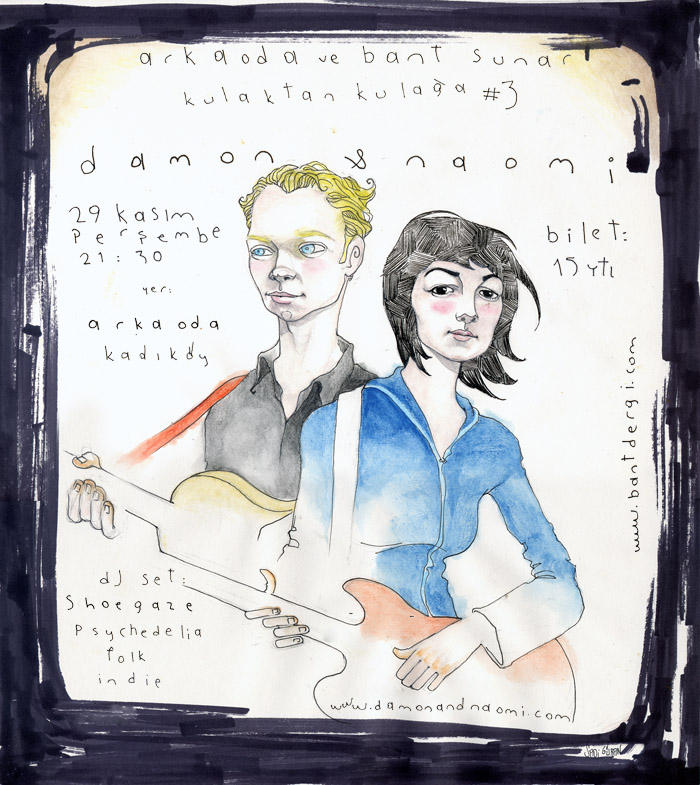 arkaoda ve bant sunar
kulaktan kulağa #3
damon & naomi
29 kasım
Perşembe
21:30
yer:
arkaoda
kadıköy
bilet:
15 ytl
www.bantdergi.com
dJ set:
Shoegaze
Psychedelia
folk
indie
www.damonandnaomi.com